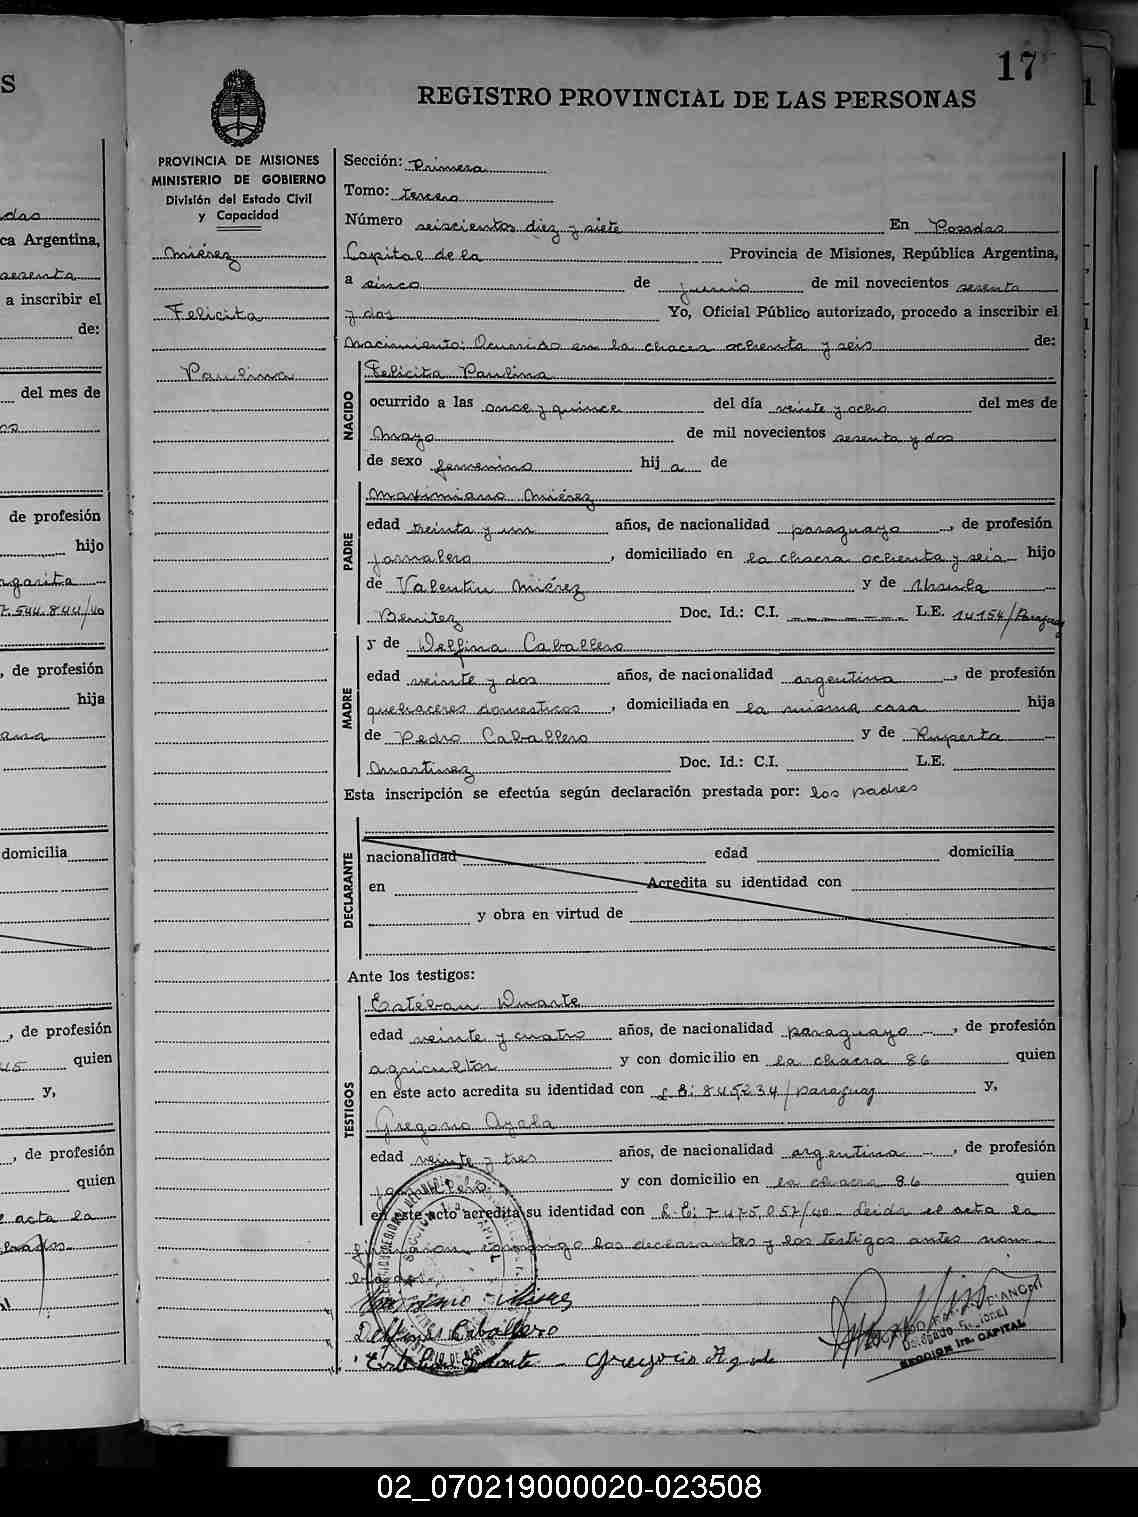 17
REGISTRO PROVINCIAL DE LAS PERSONAS
PROVINCIA DE MISIONES
MINISTERIO DE GOBIERNO
División del Estado Civil
y Capacidad
Miérez
Felicita
Paulina
Sección: Primera
Tomo: tercero
Número seiscientos diez y siete En Posadas
Capital de la Provincia de Misiones, República Argentina,
a cinco de junio de mil novecientos sesenta
y dos Yo, Oficial Público autorizado, procedo a inscribir el
Nacimiento: Ocurrido en la chacra ochenta y seis de:
NACIDO
Felicita Paulina
ocurrido a las once y quince del día veinte y ocho del mes de
Mayo de mil novecientos sesenta y dos
de sexo femenino hij a de
PADRE
Maximiano Miérez
edad treinta y un años, de nacionalidad paraguayo, de profesión
jornalero, domiciliado en la chacra ochenta y seis hijo
de Valentin Miérez y de Ursula
Benitez Doc. Id.: C.I. L.E. 14154/Paraguay
MADRE
y de Delfina Caballero
edad veinte y dos años, de nacionalidad argentina, de profesión
quehaceres domesticos, domiciliada en la misma casa hija
de Pedro Caballero y de Ruperta
Martinez Doc. Id.: C.I. L.E.
Esta inscripción se efectúa según declaración prestada por: los padres
DECLARANTE
nacionalidad edad domicilia
en Acredita su identidad con
y obra en virtud de
Ante los testigos:
TESTIGOS
Estéban Duarte
edad veinte y cuatro años, de nacionalidad paraguayo, de profesión
agricultor y con domicilio en la chacra 86 quien
en este acto acredita su identidad con 845234/paraguay y,
Gregorio Ayala
edad veinte y tres años, de nacionalidad argentina, de profesión
y con domicilio en la chacra 86 quien
en este acto acredita su identidad con L.E: 7.475.057/40 Leida el acta la
firmaron conmigo los declarantes y los testigos antes nom-
brados
Delfina Caballero
Duarte - Gregorio Ayala
Delegado
SECCION 1ra. CAPITAL
S
ca Argentina,
a inscribir el
de:
del mes de
de profesión
hijo
7.544.844/40
, de profesión
hija
domicilia
, de profesión
quien
y,
, de profesión
quien
acta la
02_070219000020-023508